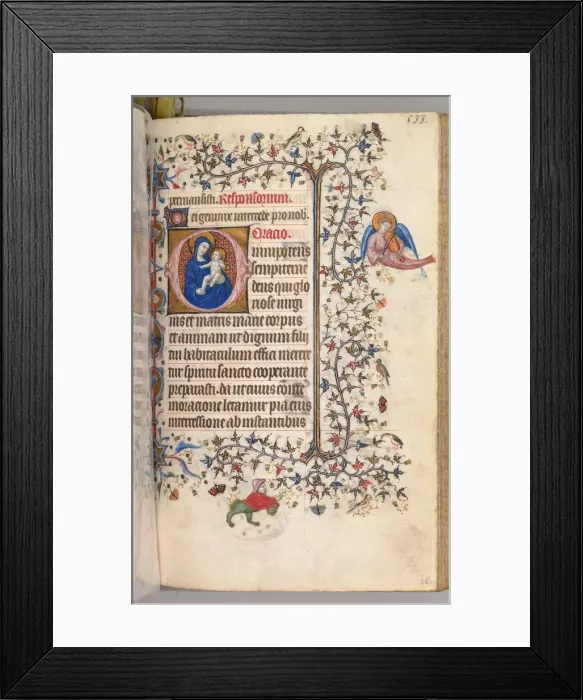 633.
permansisti. Responsorium.
ei genitrix intercede pro nob.
Oracio.
mnipotens
sempiterne
deus qui glo
riose virgi
nis et matris marie corpus
et animam ut dignum filij
tui habitaculum effici merere
tur spiritu sancto cooperante
preparasti. da ut cuius comme
moracione letamur pia eius
intercessione ab instantibus